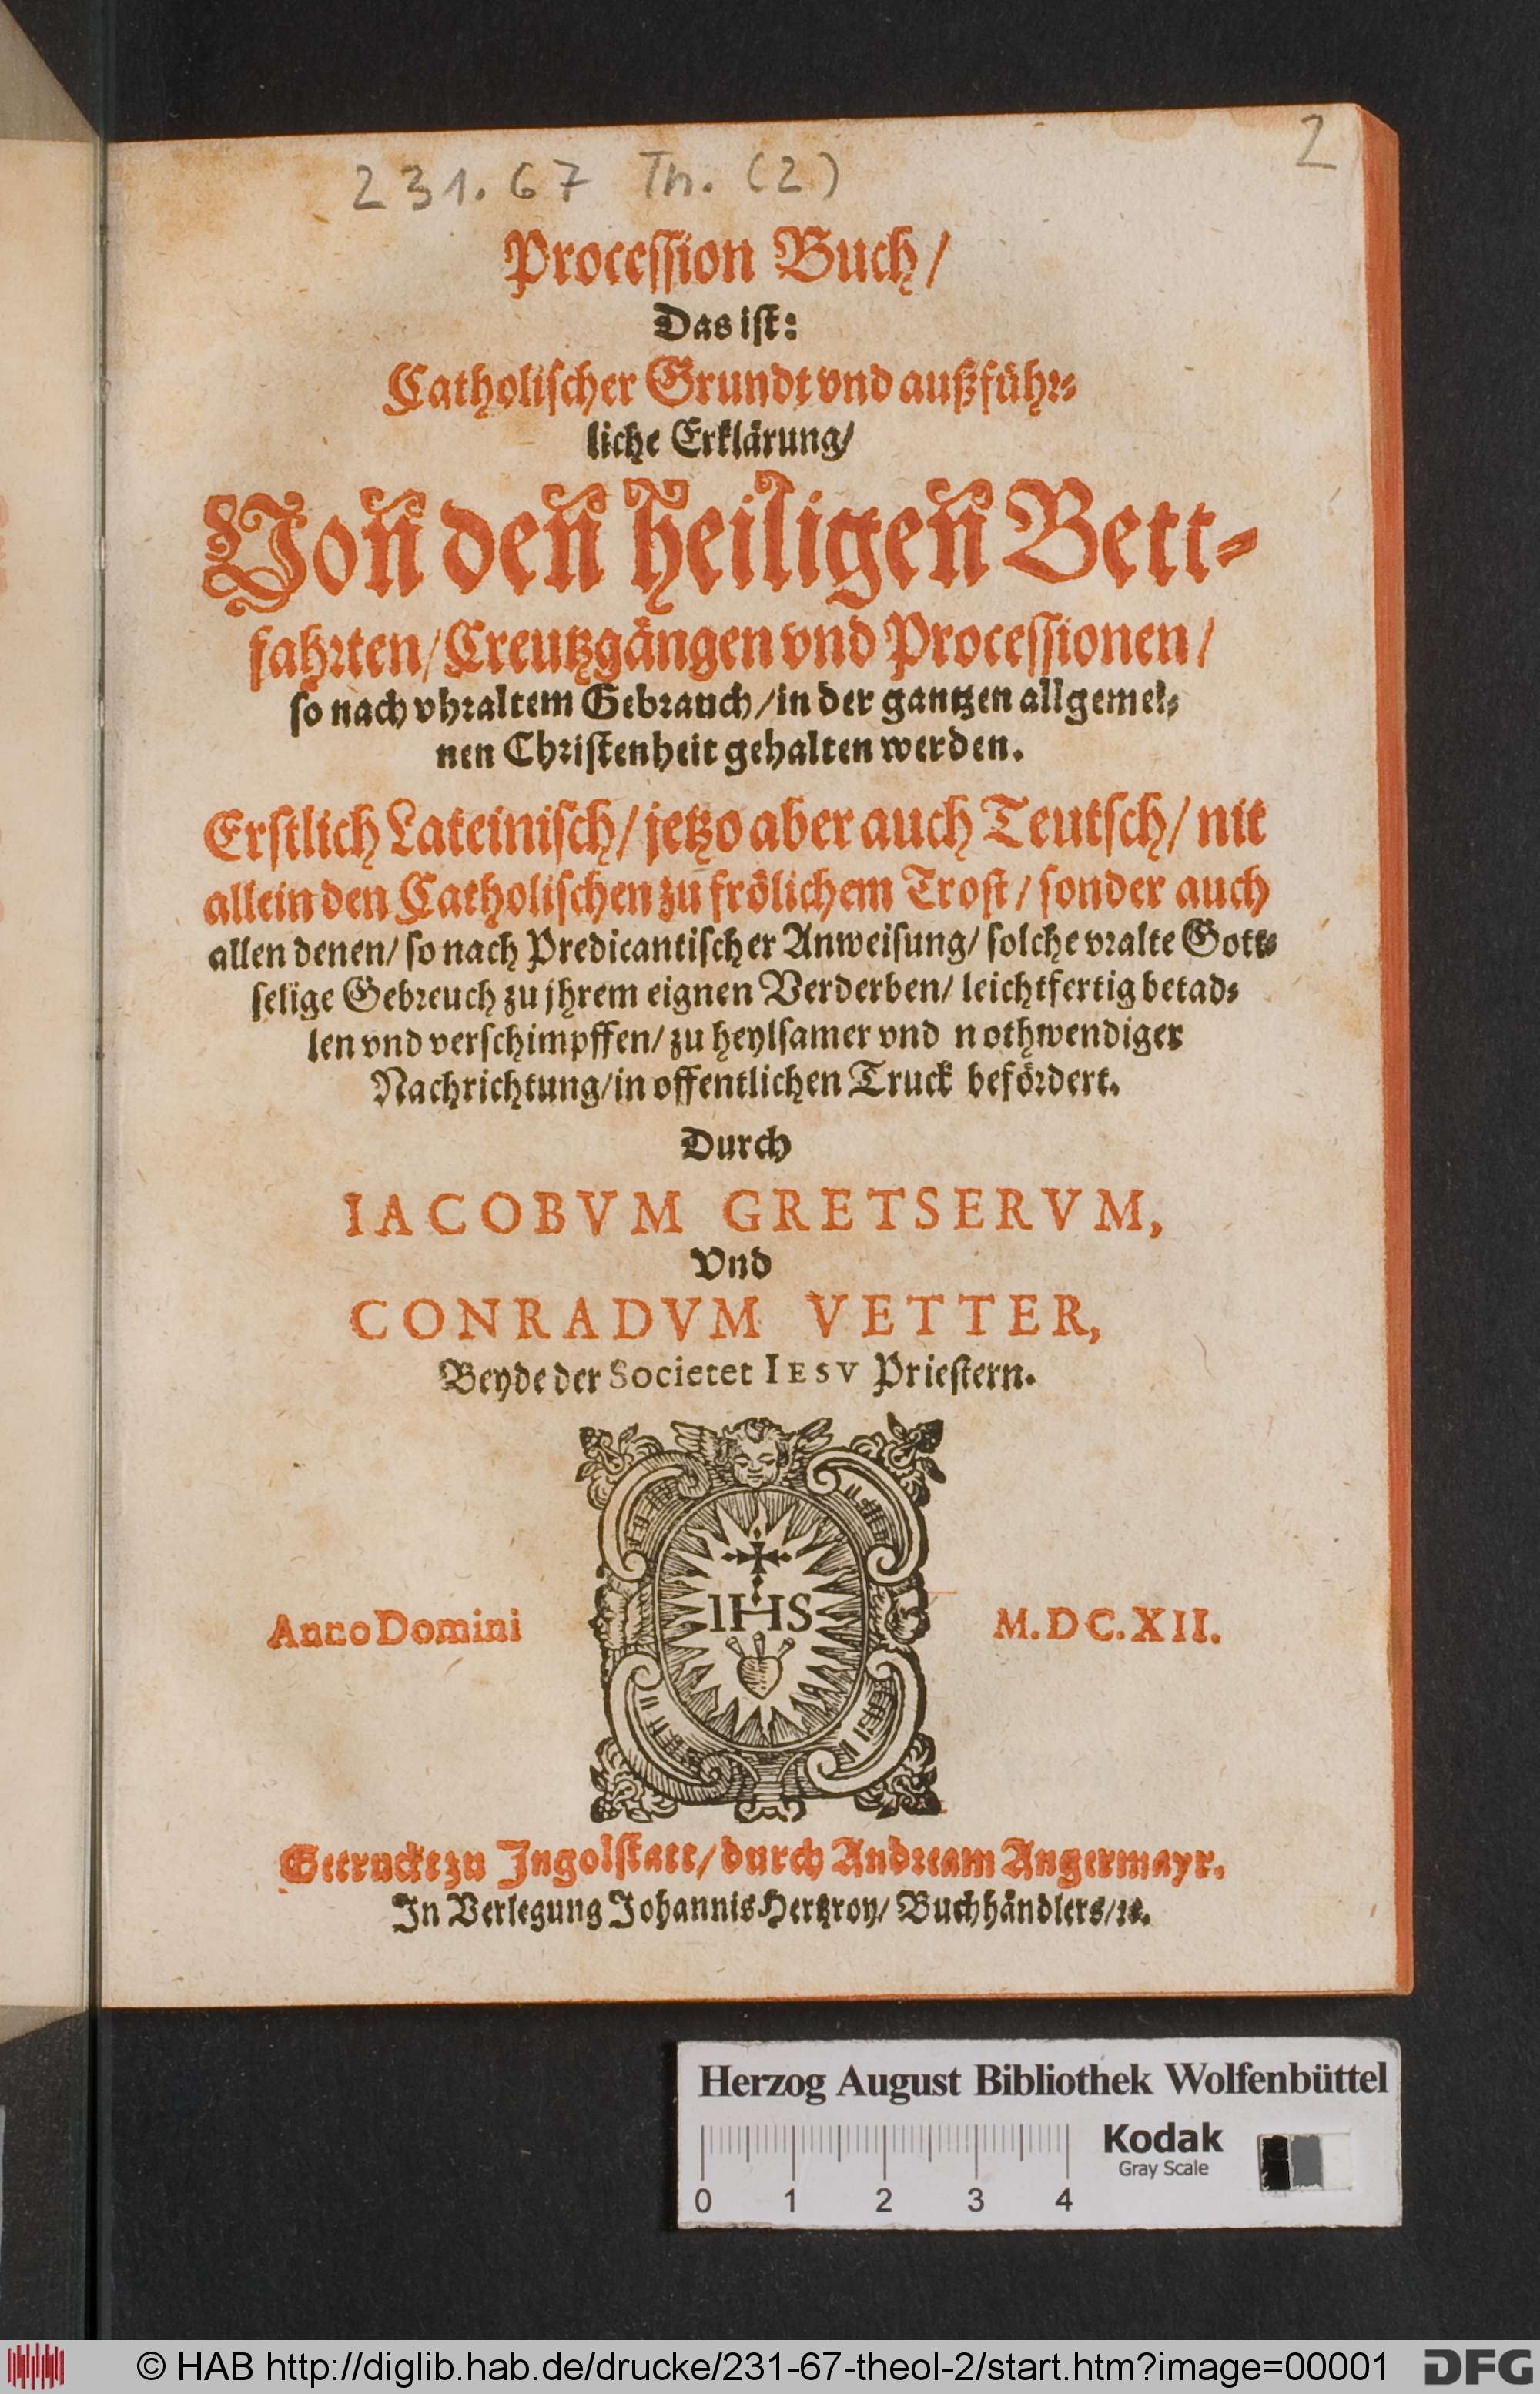 231.67 Th. (2)
2
Procession Buch/
Das ist:
Catholischer Grundt vnd außführ-
liche Erklärung/
Von den heiligen Bett-
fahrten/ Creutzgängen vnd Processionen/
so nach vhraltem Gebrauch/ in der gantzen allgemei-
nen Christenheit gehalten werden.
Erstlich Lateinisch/ jetzo aber auch Teutsch/ nit
allein den Catholischen zu frölichem Trost/ sonder auch
allen denen/ so nach Predicantischer Anweisung/ solche vralte Gott-
selige Gebreuch zu jhrem eignen Verderben/ leichtfertig betad-
len vnd verschimpffen/ zu heylsamer vnd nothwendiger
Nachrichtung/ in offentlichen Truck befördert.
Durch
IACOBVM GRETSERVM,
Vnd
CONRADVM VETTER,
Beyde der Societet IESV Priestern.
IHS
Anno Domini M.DC.XII.
Getruckt zu Ingolstatt/ durch Andream Angermayr.
In Verlegung Johannis Hertzroy/ Buchhändlers/ ꝛc.
Herzog August Bibliothek Wolfenbüttel
Kodak
Gray Scale
0 1 2 3 4
© HAB http://diglib.hab.de/drucke/231-67-theol-2/start.htm?image=00001
DFG